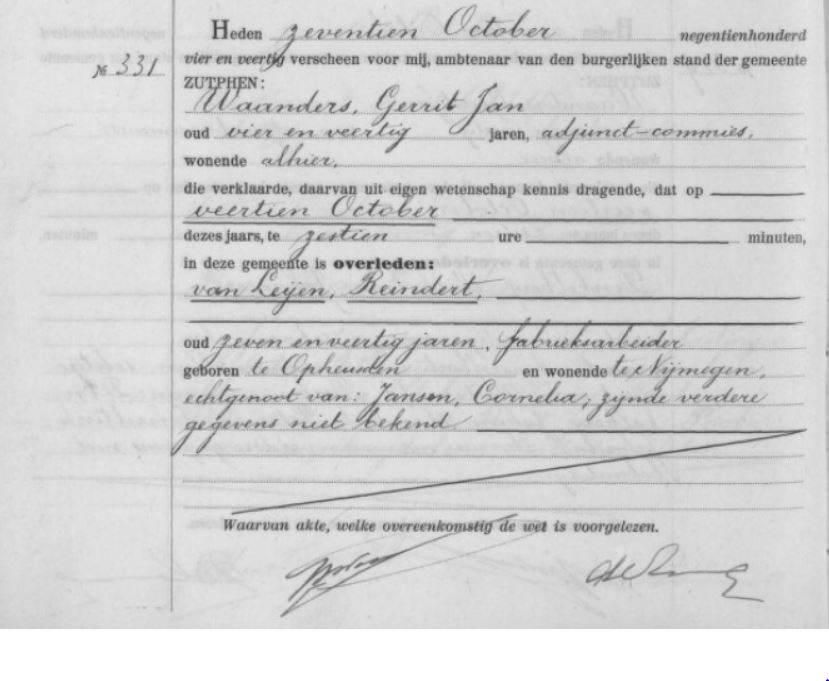 Heden zeventien October negentienhonderd
№ 331. vier en veertig verscheen voor mij, ambtenaar van den burgerlijken stand der gemeente
ZUTPHEN:
Waanders, Gerrit Jan
oud vier en veertig jaren, adjunct-commies,
wonende alhier,
die verklaarde, daarvan uit eigen wetenschap kennis dragende, dat op
veertien October
dezes jaars, te zestien ure minuten,
in deze gemeente is overleden:
van Leijen, Reindert,
oud zeven en veertig jaren, fabrieksarbeider
geboren te Opheusden en wonende te Nijmegen,
echtgenoot van: Jansen, Cornelia; zijnde verdere
gegevens niet bekend
Waarvan akte, welke overeenkomstig de wet is voorgelezen.